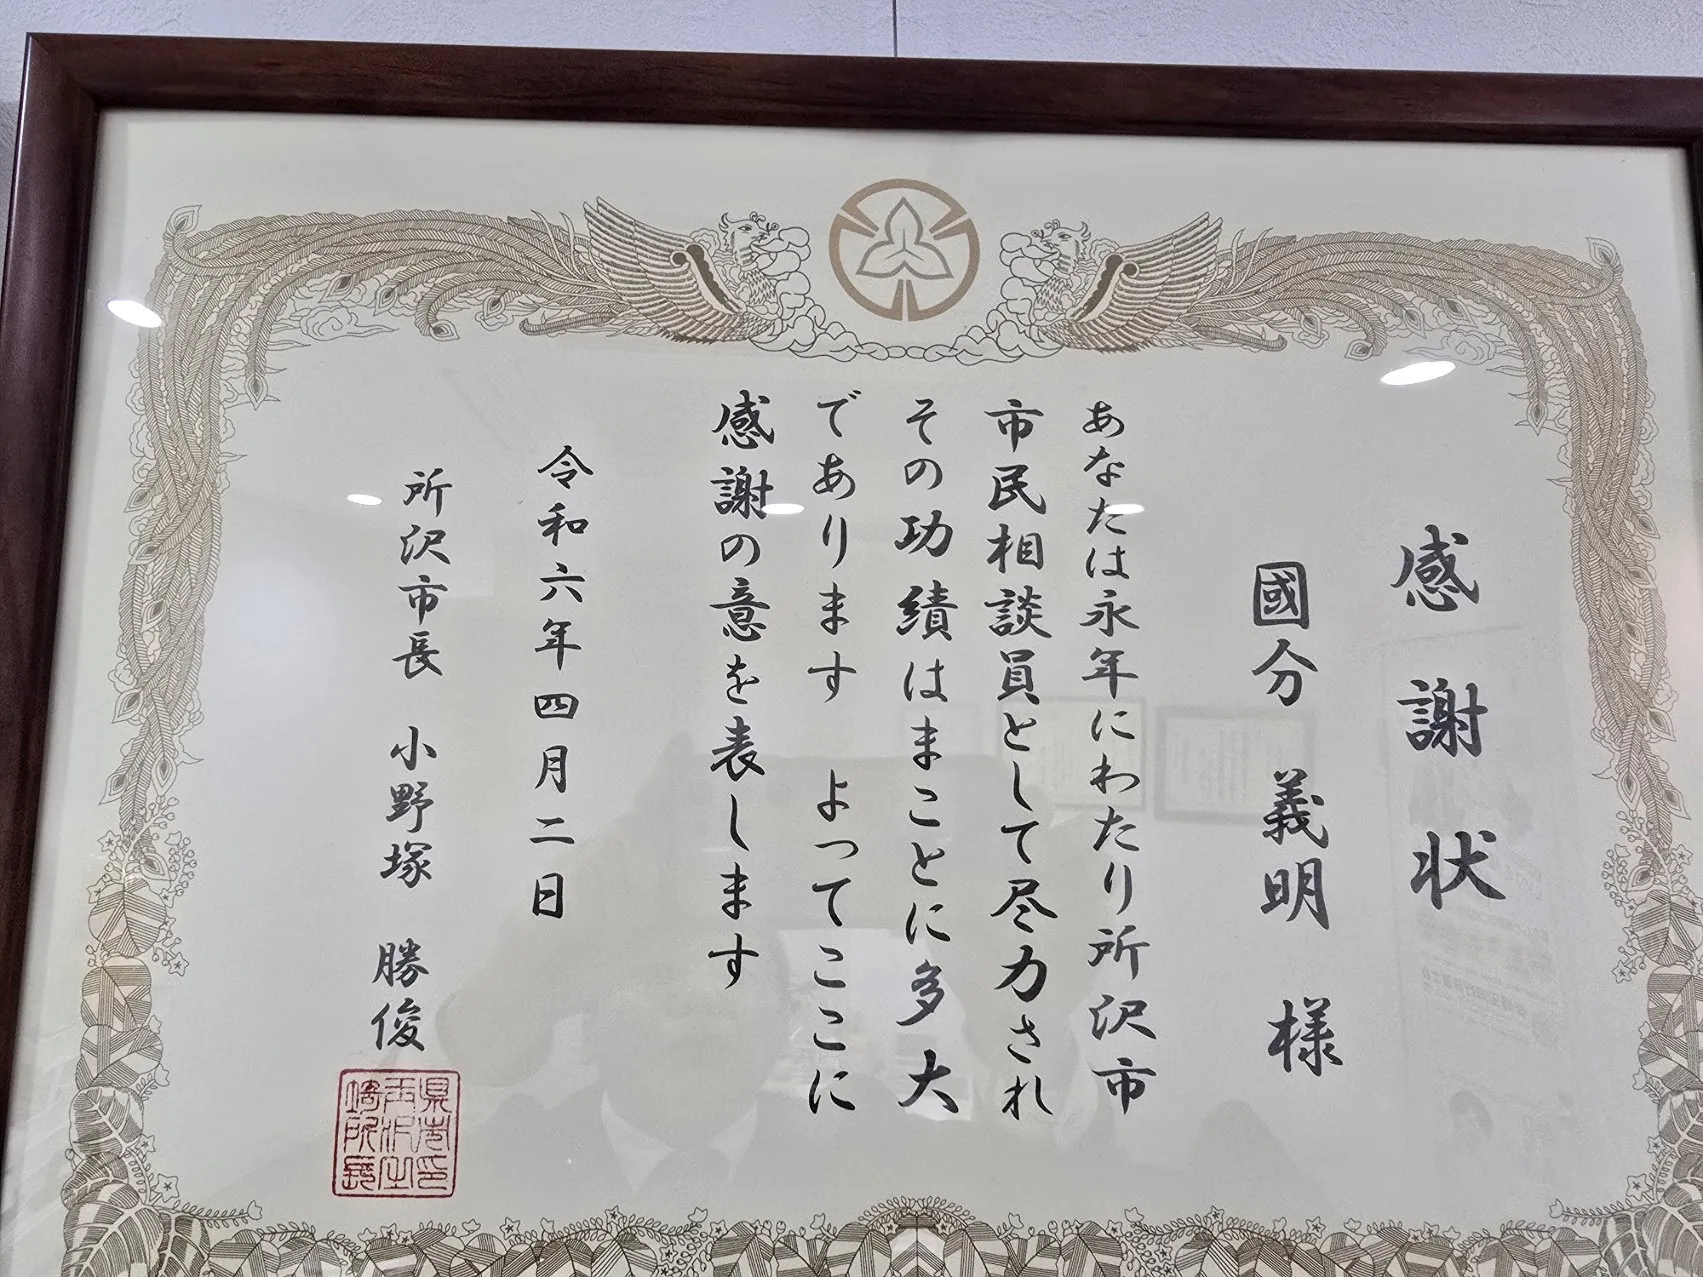 感謝状
國分 義明 様
あなたは永年にわたり所沢市
市民相談員として尽力され
その功績はまことに多大
であります よってここに
感謝の意を表します
令和六年四月二日
所沢市長 小野塚 勝俊